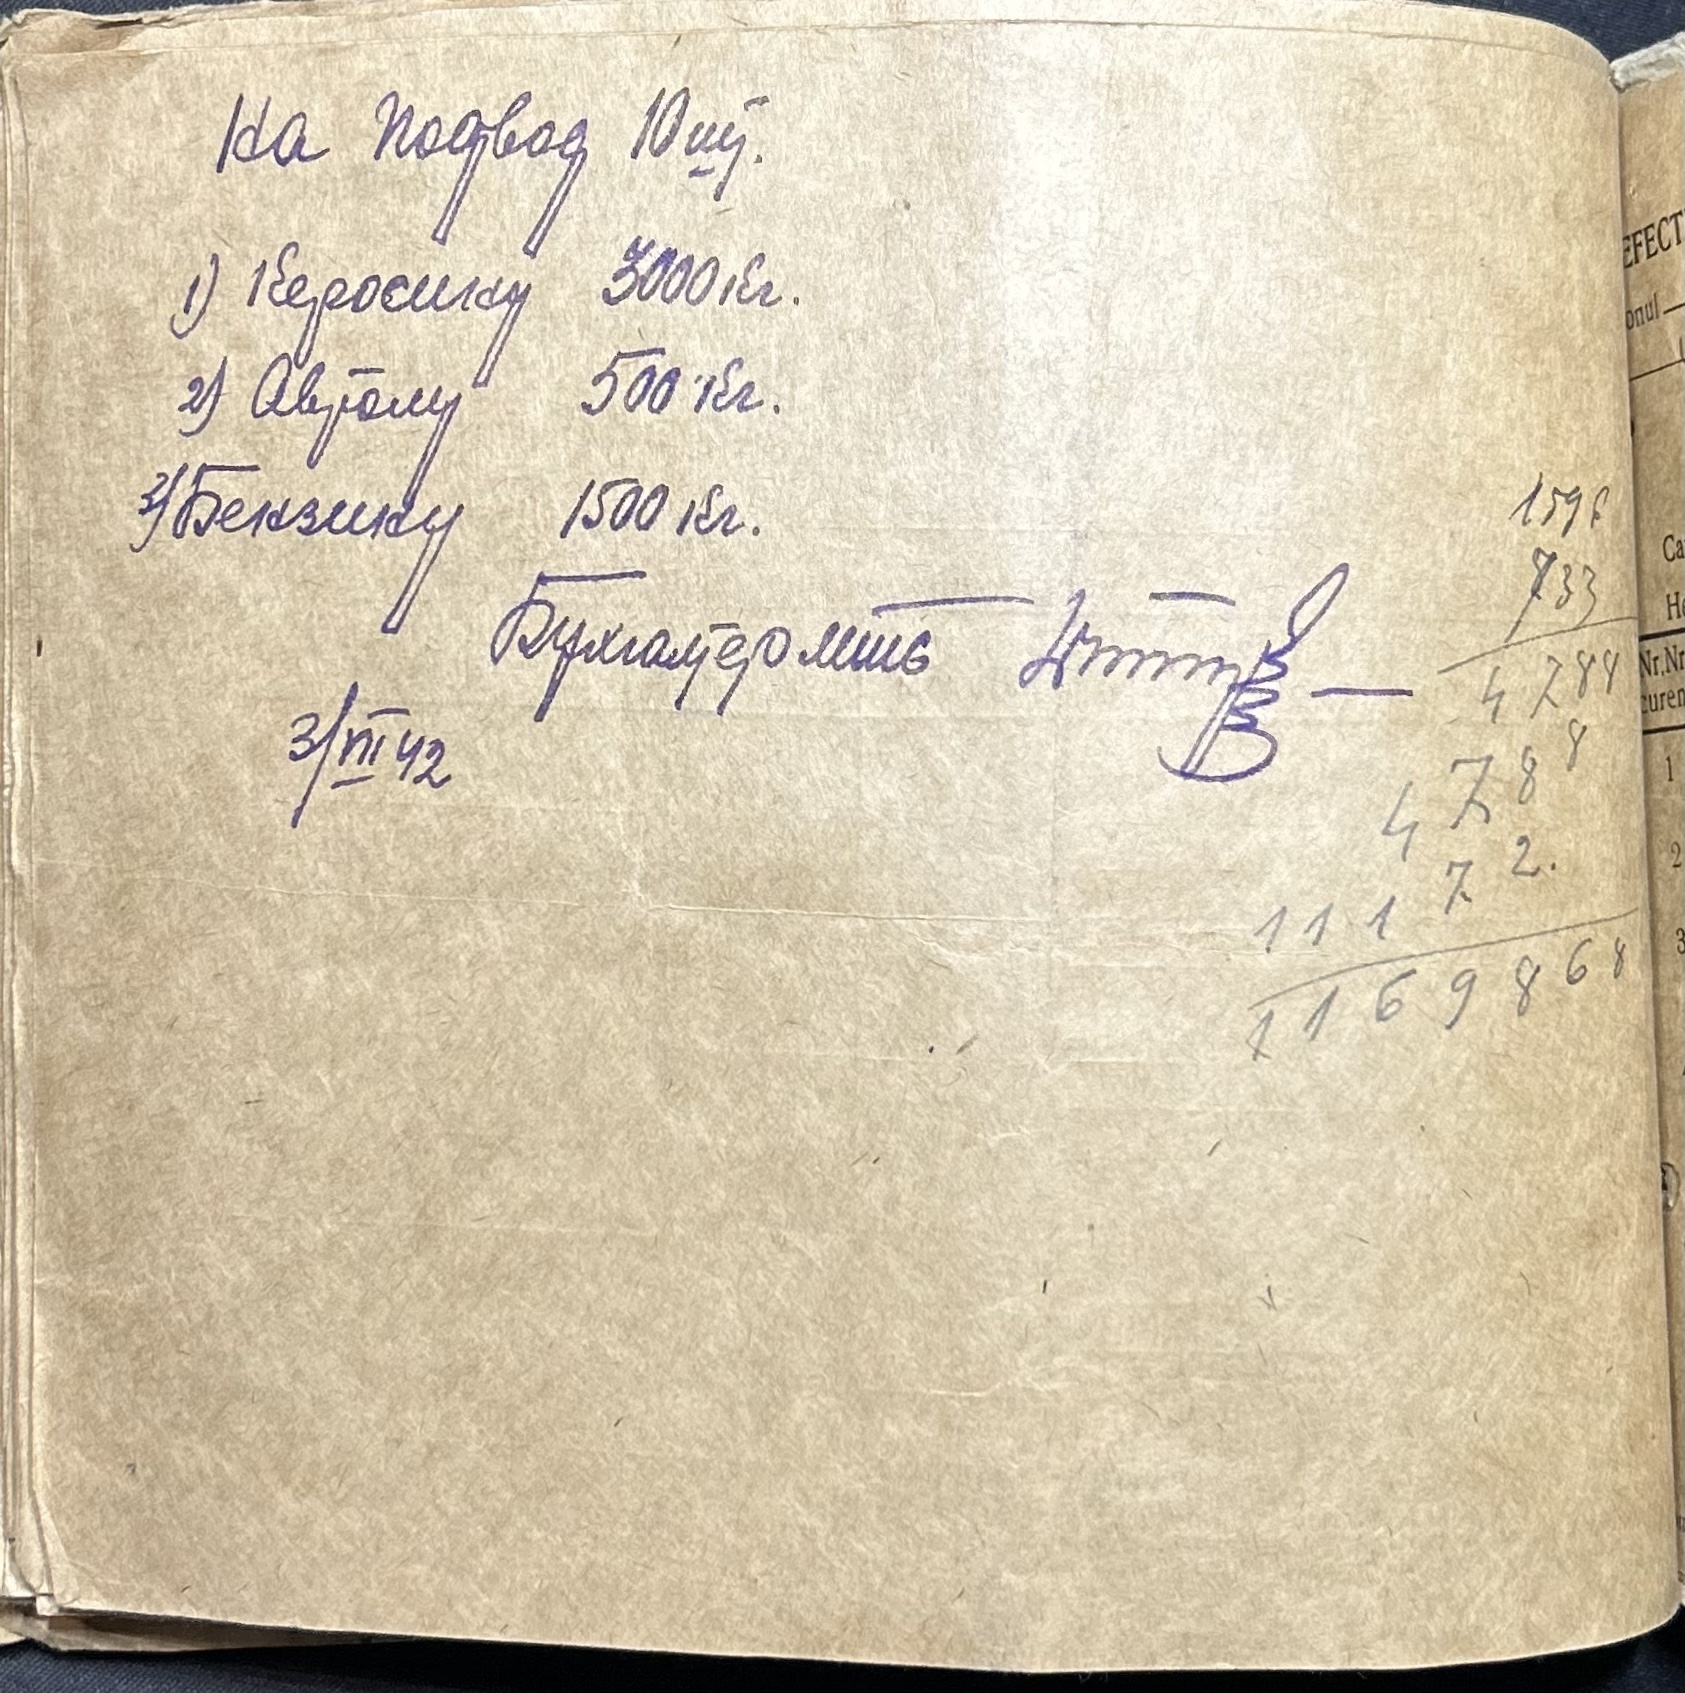 На подвод 10 шт.
1) Керосину 3000 кг.
2) Автолу 500 кг.
3) Бензину 1500 кг.
Бухгалтер мтс
3/III 42
1596
733
4788
4788
11172.
1169868
EFECT
onul
Ca
He
Nr,Nr
curen
1
2
3